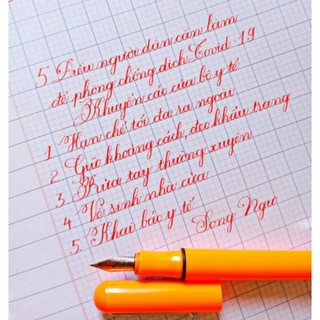 5 Điều người dân cần làm
để phòng chống dịch Covid-19
Khuyến cáo của bộ y tế
1. Hạn chế tối đa ra ngoài
2. Giữ khoảng cách, đeo khẩu trang
3. Rửa tay thường xuyên
4. Vệ sinh nhà cửa
5. Khai báo y tế
Song Ngư